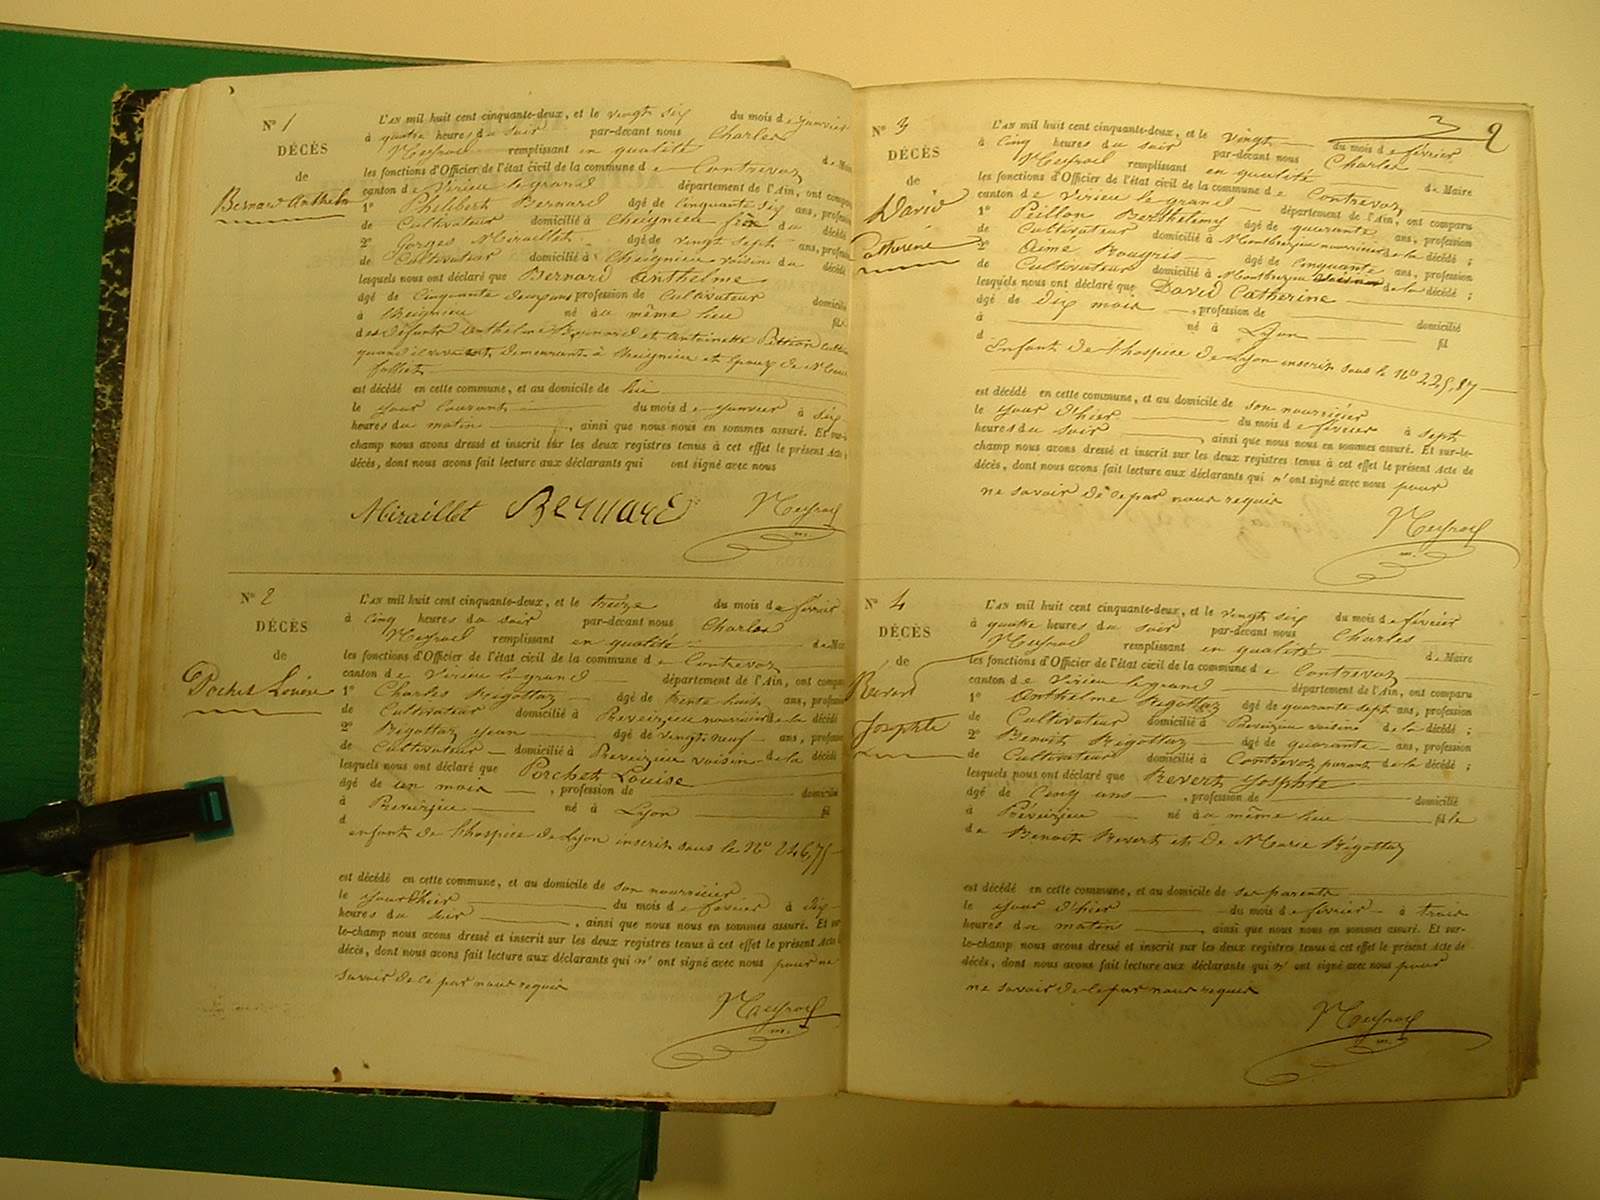 N° 1
DÉCÈS
de
Bernard Anthelme
L'AN mil huit cent cinquante-deux, et le vingt six du mois de janvier
à quatre heures du soir par-devant nous Charles
Meyraud remplissant en qualité de Maire
les fonctions d'Officier de l'état civil de la commune de Contrevoz
canton de Virieu le grand département de l'Ain, ont comparu
1° Philibert Bernard âgé de cinquante six ans, profession
de Cultivateur domicilié à Cheignieu du décédé
2° Gorges Miraillet âgé de vingt sept ans, profession
de Cultivateur domicilié à Cheignieu voisin du décédé
lesquels nous ont déclaré que Bernard Anthelme
âgé de cinquante deux ans profession de Cultivateur domicilié
à Cheignieu né au même lieu fils
des défunts Anthelme Bernard et Antoinette
quand il vivait demeurant à Cheignieu et époux de
est décédé en cette commune, et au domicile de lui
le jour courant du mois de janvier à dix
heures du matin, ainsi que nous nous en sommes assuré. Et sur-le-
champ nous avons dressé et inscrit sur les deux registres tenus à cet effet le présent Acte
décès, dont nous avons fait lecture aux déclarants qui ont signé avec nous
Miraillet Bernard
N° 2
DÉCÈS
de
Porchet Louise
L'AN mil huit cent cinquante-deux, et le treize du mois de février
à cinq heures du soir par-devant nous Charles
remplissant en qualité de Maire
les fonctions d'Officier de l'état civil de la commune de Contrevoz
canton de Virieu le grand département de l'Ain, ont comparu
1° Charles Rigottaz âgé de trente huit ans, profession
de Cultivateur domicilié à Preveizieu nourricier de la décédé
2° Rigottaz Jean âgé de vingt neuf ans, profession
de Cultivateur domicilié à Preveizieu voisin de la décédé
lesquels nous ont déclaré que Porchet Louise
âgé de un mois, profession de domicilié
à Preveizieu né à Lyon fil
d
enfant de l'hospice de Lyon inscrit sous le N° 246,75
est décédé en cette commune, et au domicile de son nourricier
le jour d'hier du mois de février à dix
heures du soir, ainsi que nous nous en sommes assuré. Et sur-
le-champ nous avons dressé et inscrit sur les deux registres tenus à cet effet le présent Acte
décès, dont nous avons fait lecture aux déclarants qui n'ont signé avec nous pour ne
savoir de ce par nous requis
3 2
N° 3
DÉCÈS
de
David
Catherine
L'AN mil huit cent cinquante-deux, et le vingt du mois de février
à cinq heures du soir par-devant nous Charles
remplissant en qualité de Maire
les fonctions d'Officier de l'état civil de la commune de Contrevoz
canton de Virieu le grand département de l'Ain, ont comparu
1° Peillon Berthelemy âgé de quarante ans, profession
de Cultivateur domicilié à Montbreizieu nourricier de la décédé ;
2° Aimé âgé de cinquante ans, profession
de Cultivateur domicilié à Montbreizieu voisin de la décédé ;
lesquels nous ont déclaré que David Catherine
âgé de dix mois, profession de domicilié
à né à Lyon fil
d
Enfant de l'hospice de Lyon inscrit sous le N° 225,87
est décédé en cette commune, et au domicile de son nourricier
le jour d'hier du mois de février à sept
heures du soir, ainsi que nous nous en sommes assuré. Et sur-le-
champ nous avons dressé et inscrit sur les deux registres tenus à cet effet le présent Acte de
décès, dont nous avons fait lecture aux déclarants qui n'ont signé avec nous pour
ne savoir de ce par nous requis
N° 4
DÉCÈS
de
Revert
Josephte
L'AN mil huit cent cinquante-deux, et le vingt six du mois de février
à quatre heures du soir par-devant nous Charles
remplissant en qualité de Maire
les fonctions d'Officier de l'état civil de la commune de Contrevoz
canton de Virieu le grand département de l'Ain, ont comparu
1° Anthelme Rigottaz âgé de quarante sept ans, profession
de Cultivateur domicilié à Preveizieu voisin de la décédé ;
2° Benoit Rigottaz âgé de quarante ans, profession
de Cultivateur domicilié à Contrevoz parent de la décédé ;
lesquels nous ont déclaré que Revert Josephte
âgé de cinq ans, profession de domicilié
à Preveizieu né au même lieu fille
de Benoit Revert et de Marie Rigottaz
est décédé en cette commune, et au domicile de ses parents
le jour d'hier du mois de février à trois
heures du matin, ainsi que nous nous en sommes assuré. Et sur-
le-champ nous avons dressé et inscrit sur les deux registres tenus à cet effet le présent Acte de
décès, dont nous avons fait lecture aux déclarants qui n'ont signé avec nous pour
ne savoir de ce par nous requis